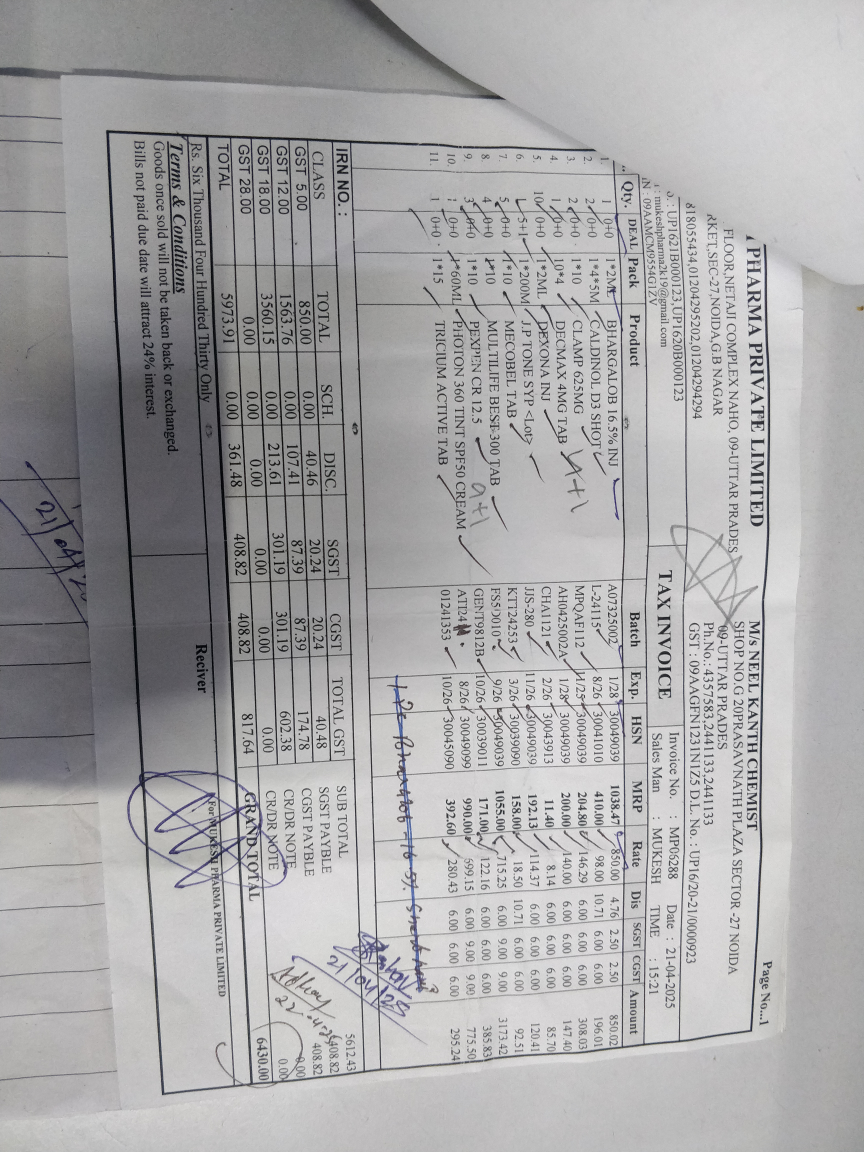 PHARMA PRIVATE LIMITED
FLOOR,NETAJI COMPLEX NAHO, 09-UTTAR PRADES
RKET,SEC-27,NOIDA,G.B NAGAR
818055434,01204295202,01204294294
.: UP1621B000123,UP1620B000123
: mukeshpharma2k19@gmail.com
N : 09AAMCM9554G1ZV
Page No...1
M/s NEEL KANTH CHEMIST
SHOP NO.G 20PRASAVNATH PLAZA SECTOR -27 NOIDA
09-UTTAR PRADES
Ph.No.: 4357583,2441133,2441133
GST : 09AAGFN1123N1Z5 D.L. No. : UP16/20-21/0000923
TAX INVOICE
Invoice No. : MP06288 Date : 21-04-2025
Sales Man : MUKESH TIME : 15:21
Qty. DEAL Pack Product Batch Exp. HSN MRP Rate Dis SGST CGST Amount
1. 1 0+0 1*2ML BHARGALOB 16.5% INJ A07325002 1/28 30049039 1038.47 850.00 4.76 2.50 2.50 850.02
2. 2 0+0 1*4*5M CALDINOL D3 SHOT L-24115 8/26 30041010 410.00 98.00 10.71 6.00 6.00 196.01
3. 2 0+0 1*10 CLAMP 625MG MPQAF112 11/25 30049039 204.80 146.29 6.00 6.00 6.00 308.03
4. 1 0+0 10*4 DECMAX 4MG TAB AH0425002A 1/28 30049039 200.00 140.00 6.00 6.00 6.00 147.40
5. 10 0+0 1*2ML DEXONA INJ CHA1121 2/26 30043913 11.40 8.14 6.00 6.00 6.00 85.70
6. 5+1 1*200M J.P TONE SYP <Lot> JJS-280 11/26 30049039 192.13 114.37 6.00 6.00 6.00 120.41
7. 5 0+0 1*10 MECOBEL TAB KTT24253 3/26 30039090 158.00 18.50 10.71 6.00 6.00 92.51
8. 4 0+0 1*10 MULTILIFE BEST-300 TAB FS5D010 9/26 30049039 1055.00 715.25 6.00 9.00 9.00 3173.42
9. 3 0+0 1*10 PEXPEN CR 12.5 GENT9812B 10/26 30039011 171.00 122.16 6.00 6.00 6.00 385.83
10. 1 0+0 1*60ML PHOTON 360 TINT SPF50 CREAM 8/26 30049099 990.00 699.15 6.00 9.00 9.00 775.50
11. 1 0+0 1*15 TRICIUM ACTIVE TAB 01241353 10/26 30045090 392.60 280.43 6.00 6.00 6.00 295.24
4+1
9+1
21/04/25
22-04-25
IRN NO. :
CLASS TOTAL SCH. DISC. SGST CGST TOTAL GST
GST 5.00 850.00 0.00 40.46 20.24 20.24 40.48
GST 12.00 1563.76 0.00 107.41 87.39 87.39 174.78
GST 18.00 3560.15 0.00 213.61 301.19 301.19 602.38
GST 28.00 0.00 0.00 0.00 0.00 0.00 0.00
TOTAL 5973.91 0.00 361.48 408.82 408.82 817.64
SUB TOTAL 5612.43
SGST PAYBLE 408.82
CGST PAYBLE 408.82
CR/DR NOTE 0.00
CR/DR NOTE 0.00
GRAND TOTAL 6430.00
Rs. Six Thousand Four Hundred Thirty Only
Terms & Conditions
Goods once sold will not be taken back or exchanged.
Bills not paid due date will attract 24% interest.
Reciver
For MUKESH PHARMA PRIVATE LIMITED